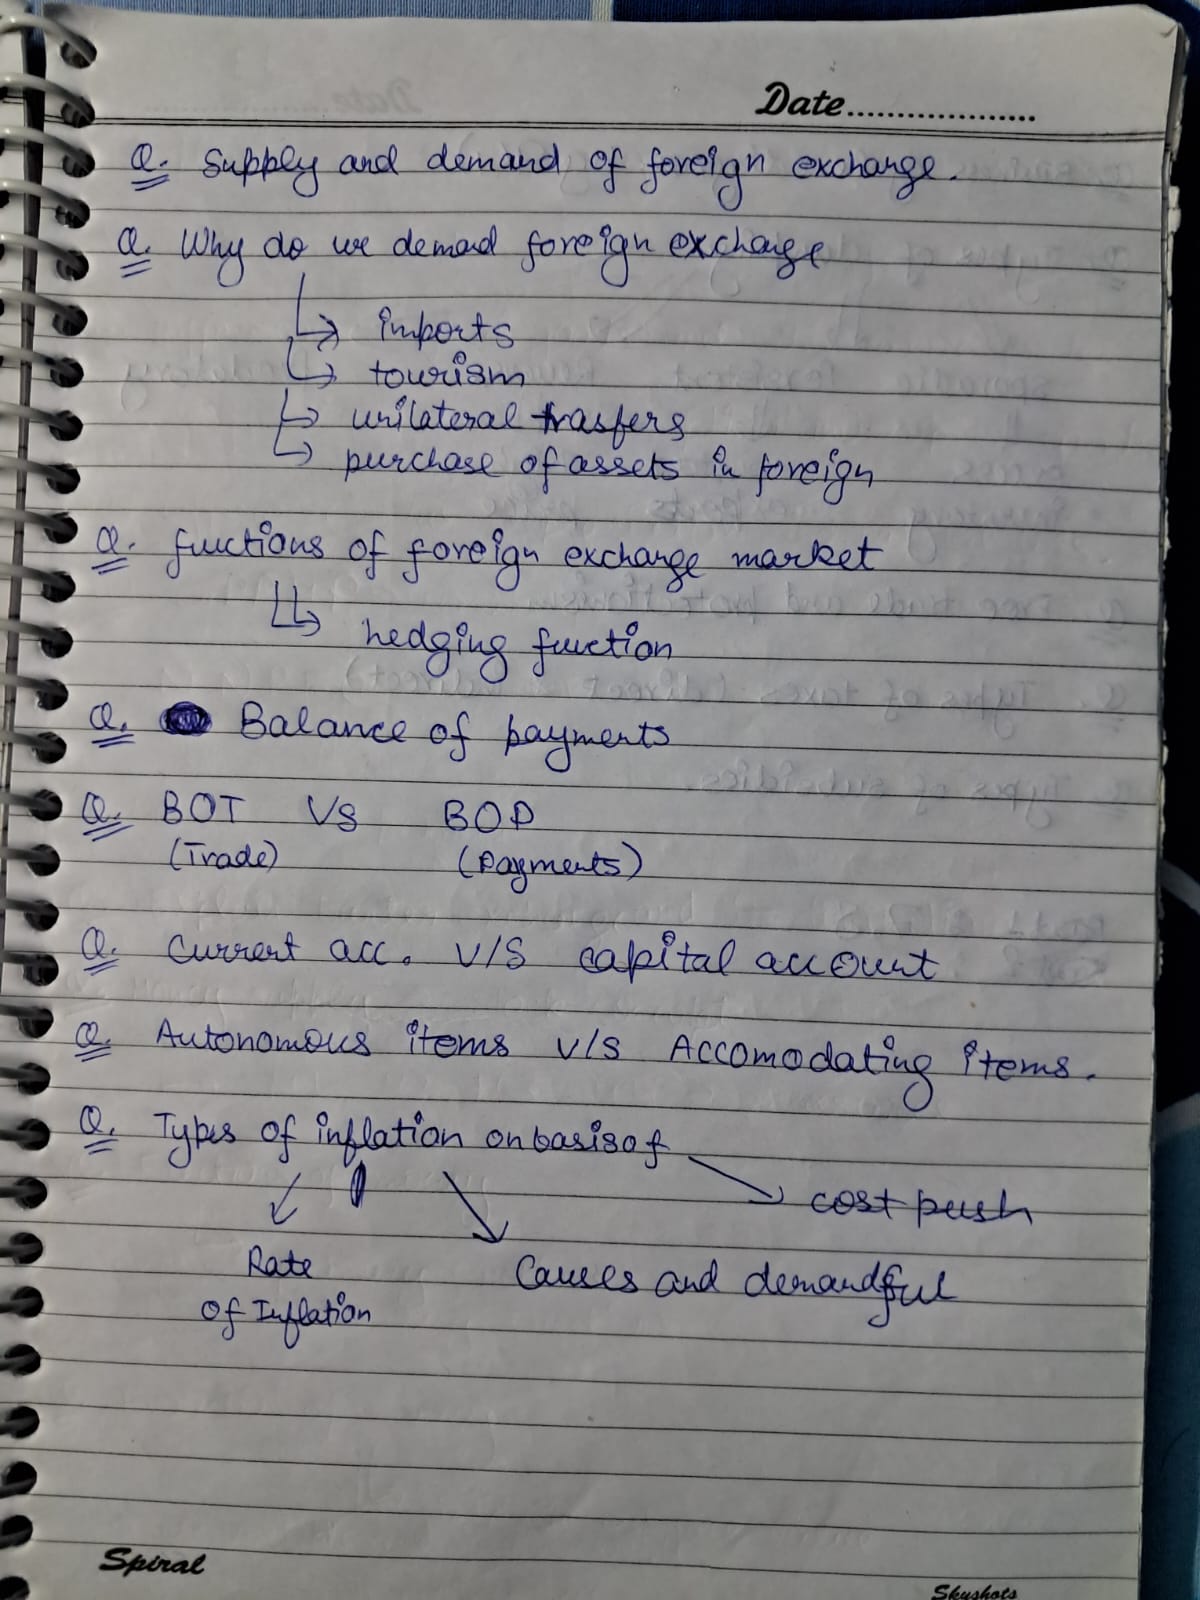 Date....................
Q. Supply and demand of foreign exchange.
Q. Why do we demad foreign exchange
imports
tourism
unilateral trasfers
purchase of assets in foreign
Q. fuctions of foreign exchange market
hedging function
Q. Balance of payments
Q. BOT Vs BOP
(Trade) (Payments)
Q. Current acc. V/S capital account
Q. Autonomous items v/s Accomodating items.
Q. Types of inflation on basis of
cost push
Rate Causes and demandful
of Inflation
Spiral
Skyshots